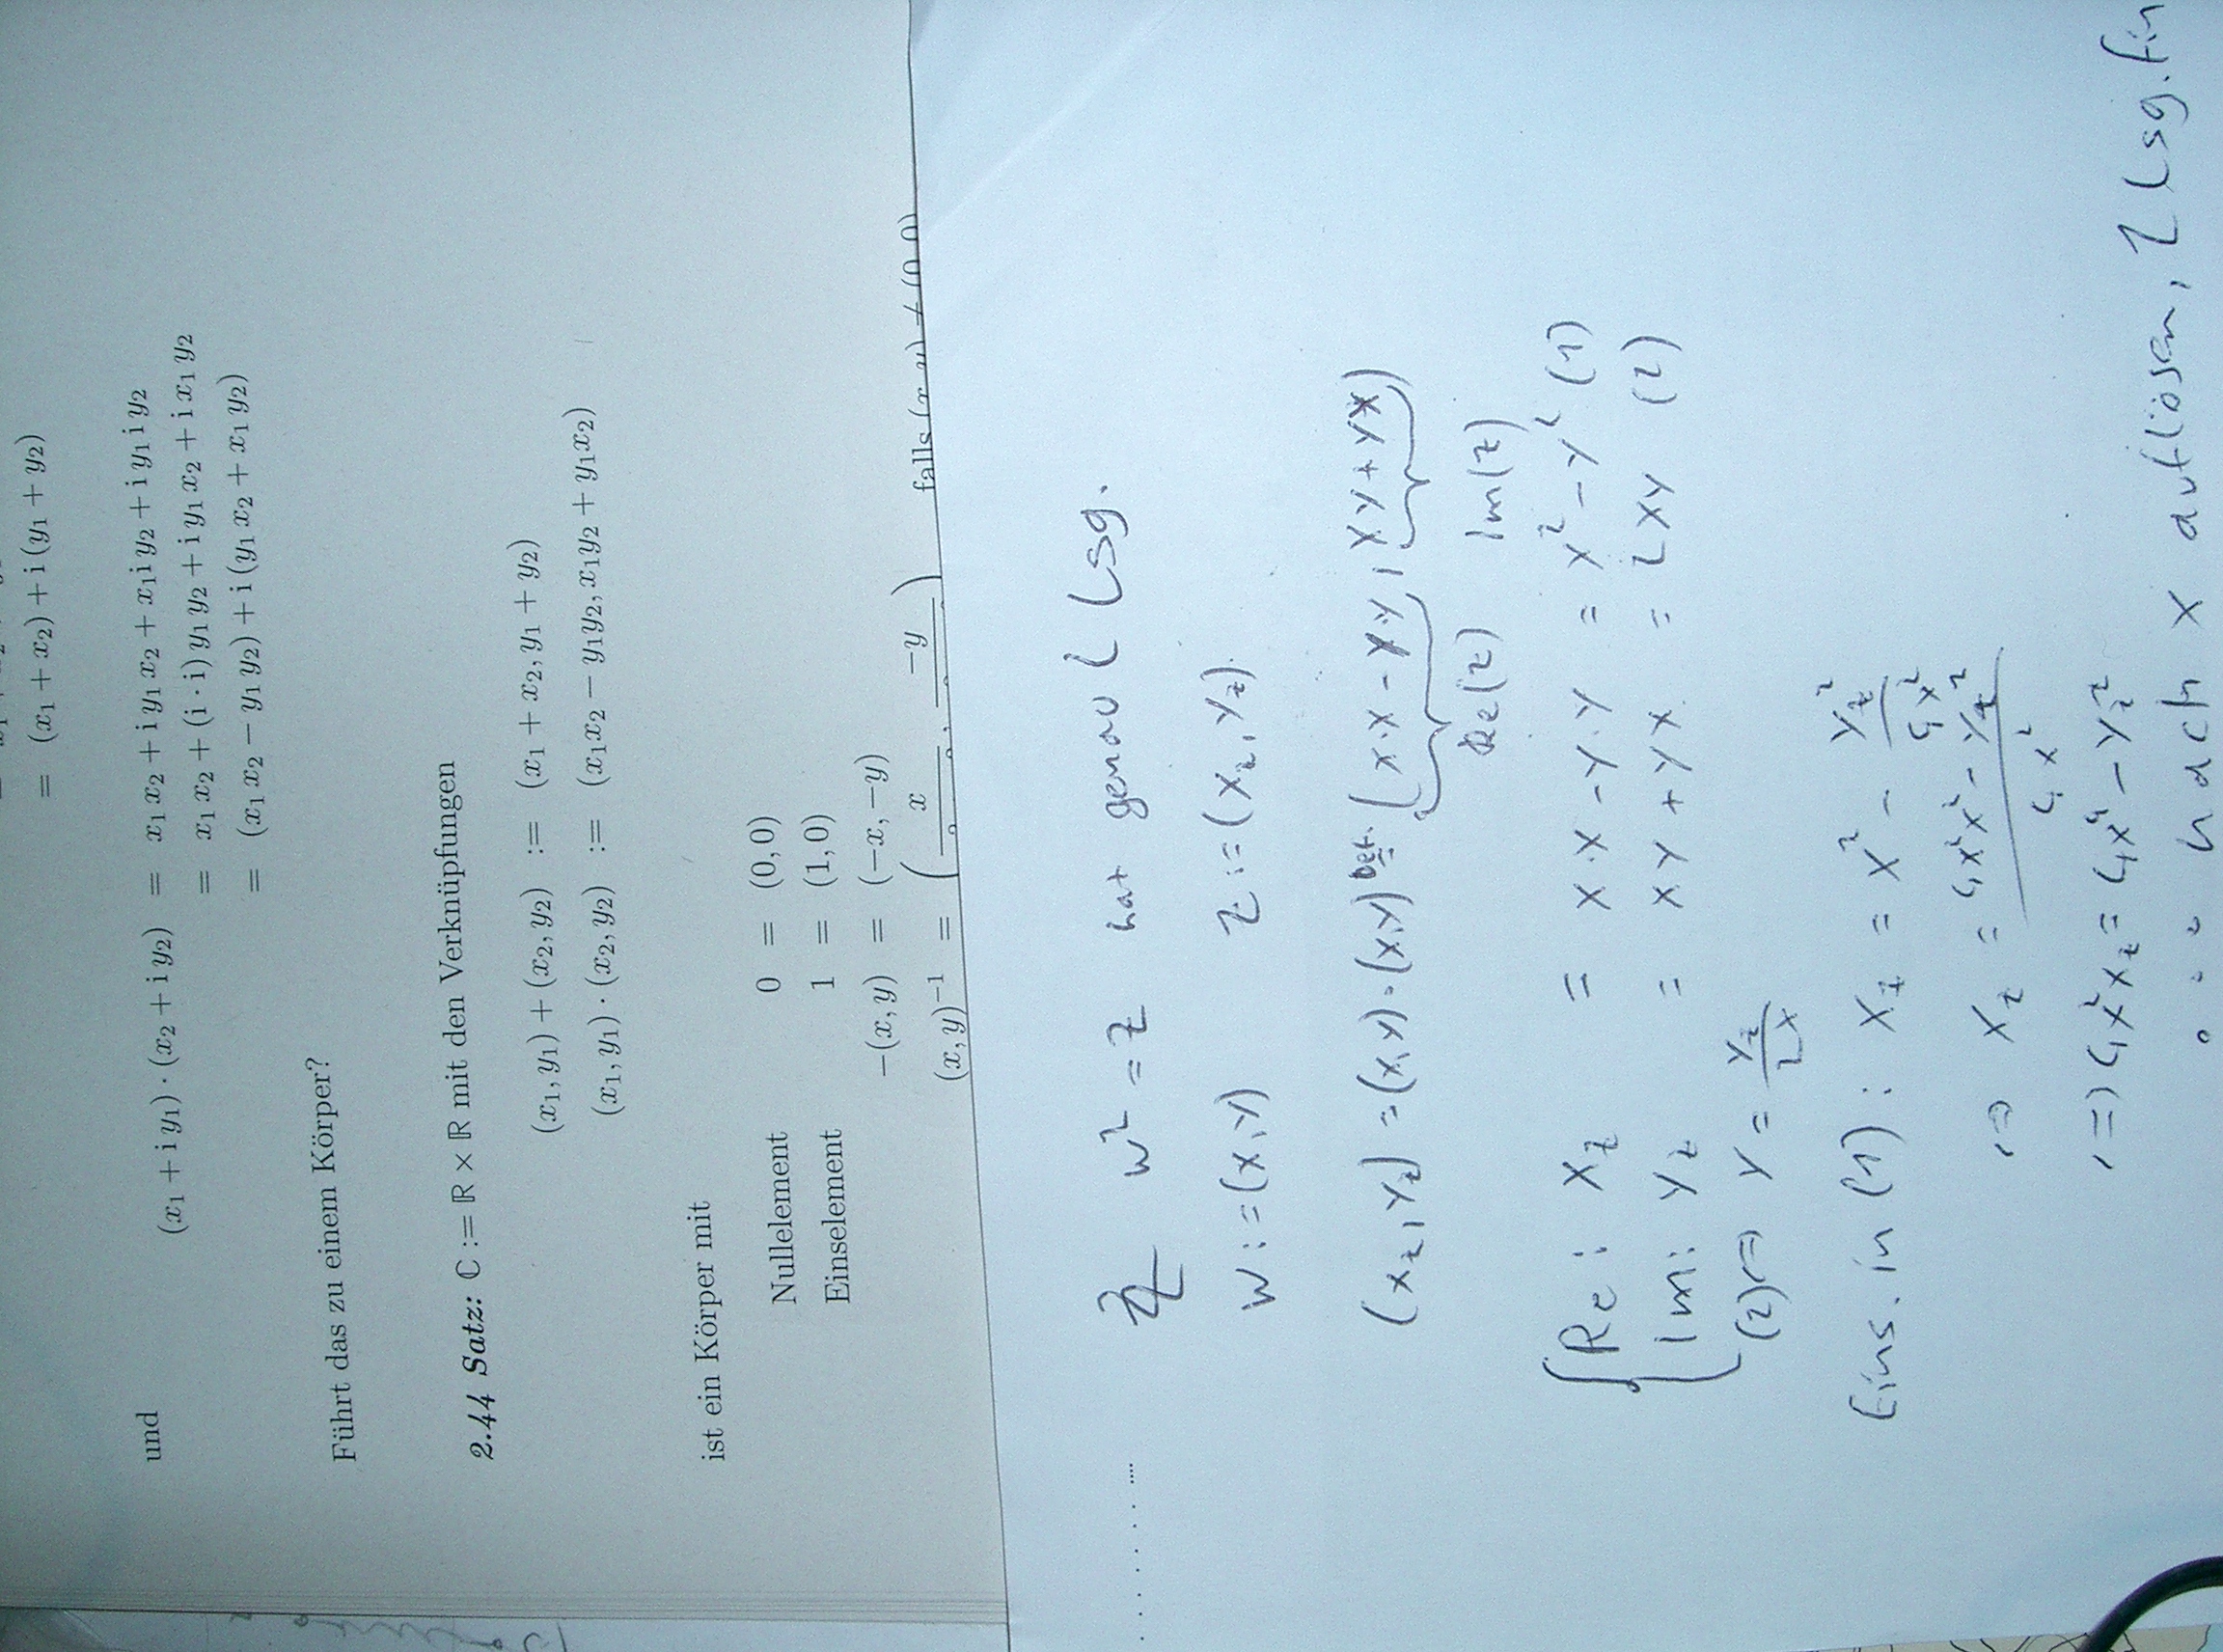 = (x₁ + x₂) + i (y₁ + y₂)
und
(x₁ + i y₁) · (x₂ + i y₂) = x₁ x₂ + i y₁ x₂ + x₁ i y₂ + i y₁ i y₂
= x₁ x₂ + (i · i) y₁ y₂ + i y₁ x₂ + i x₁ y₂
= (x₁ x₂ − y₁ y₂) + i (y₁ x₂ + x₁ y₂)
Führt das zu einem Körper?
2.44 Satz: ℂ := ℝ × ℝ mit den Verknüpfungen
(x₁, y₁) + (x₂, y₂) := (x₁ + x₂, y₁ + y₂)
(x₁, y₁) · (x₂, y₂) := (x₁x₂ − y₁y₂, x₁y₂ + y₁x₂)
ist ein Körper mit
Nullelement 0 = (0, 0)
Einselement 1 = (1, 0)
−(x, y) = (−x, −y)
(x, y)⁻¹ = ( x , −y ) falls (x, y) ≠ (0, 0)
w² = z hat genau 2 Lsg.
w := (x, y) z := (x_z, y_z).
(x_z, y_z) = (x, y) · (x, y) Def.= (x·x − y·y, xy + yx)
Re(z) Im(z)
Re: x_z = x·x − y·y = x² − y² (1)
Im: y_z = xy + yx = 2xy (2)
(2) ⇒ y = y_z / 2x
Eins. in (1): x_z = x² − y_z² / 4x²
⇒ x_z = (4x²x² − y_z²) / 4x²
⇒ 4x² x_z = 4x⁴ − y_z²
... nach x auflösen, 2 Lsg.